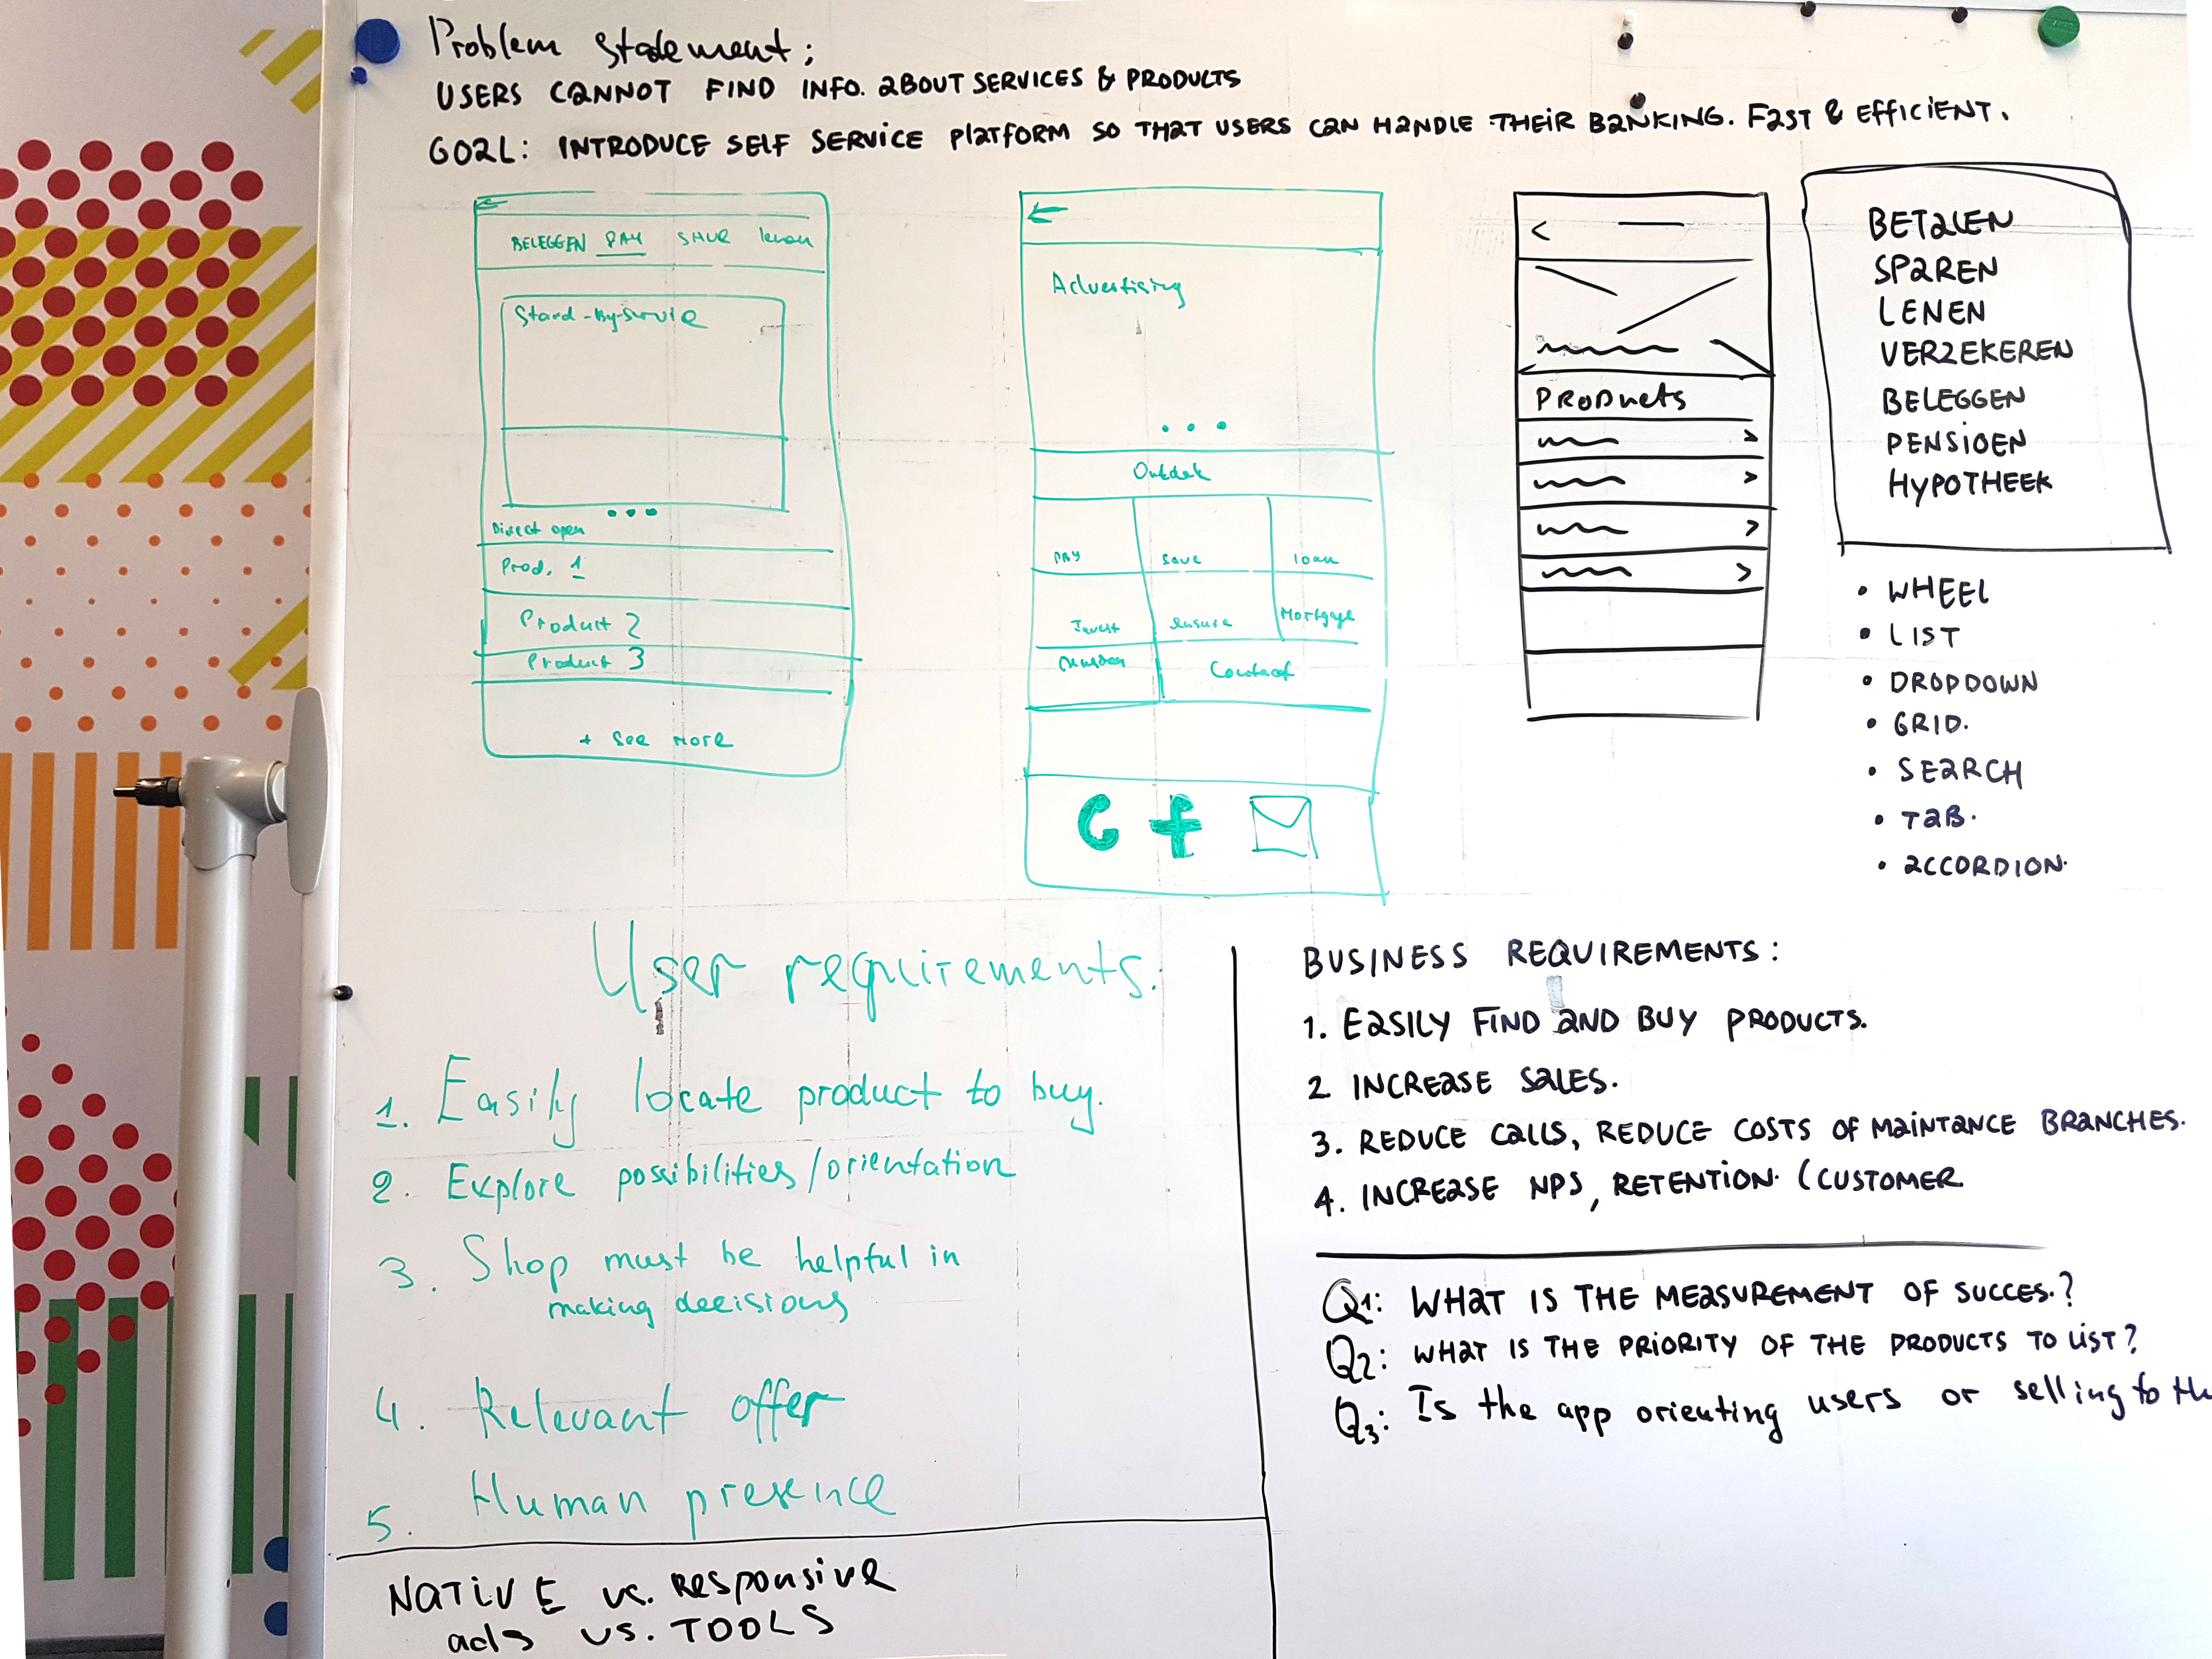 Problem statement:
USERS CANNOT FIND INFO. ABOUT SERVICES & PRODUCTS
GOAL: INTRODUCE SELF SERVICE PLATFORM SO THAT USERS CAN HANDLE THEIR BANKING. FAST & EFFICIENT.
BELEGGEN PAY lenen
Stand-By-Servic
Direct open
Prod. 1
Product 2
Product 3
+ See More
Advertising
Ontdek
PAY save loan
Invest Ensure Mortgage
Contact
f
Products
BETALEN
SPAREN
LENEN
VERZEKEREN
BELEGGEN
PENSIOEN
HYPOTHEEK
• WHEEL
• LIST
• DROPDOWN
• GRID.
• SEARCH
• TAB.
• ACCORDION.
User requirements:
1. Easily locate product to buy.
2. Explore possibilities/orientation
3. Shop must be helpful in
making decisions
4. Relevant offer
5. Human presence
NATIVE vs. Responsive
ads vs. TOOLS
BUSINESS REQUIREMENTS:
1. EASILY FIND AND BUY PRODUCTS.
2 INCREASE SALES.
3. REDUCE CALLS, REDUCE COSTS OF MAINTANCE BRANCHES.
4. INCREASE NPS, RETENTION. (CUSTOMER
Q1: WHAT IS THE MEASUREMENT OF SUCCES.?
Q2: WHAT IS THE PRIORITY OF THE PRODUCTS TO LIST?
Q3: Is the app orienting users or selling to th